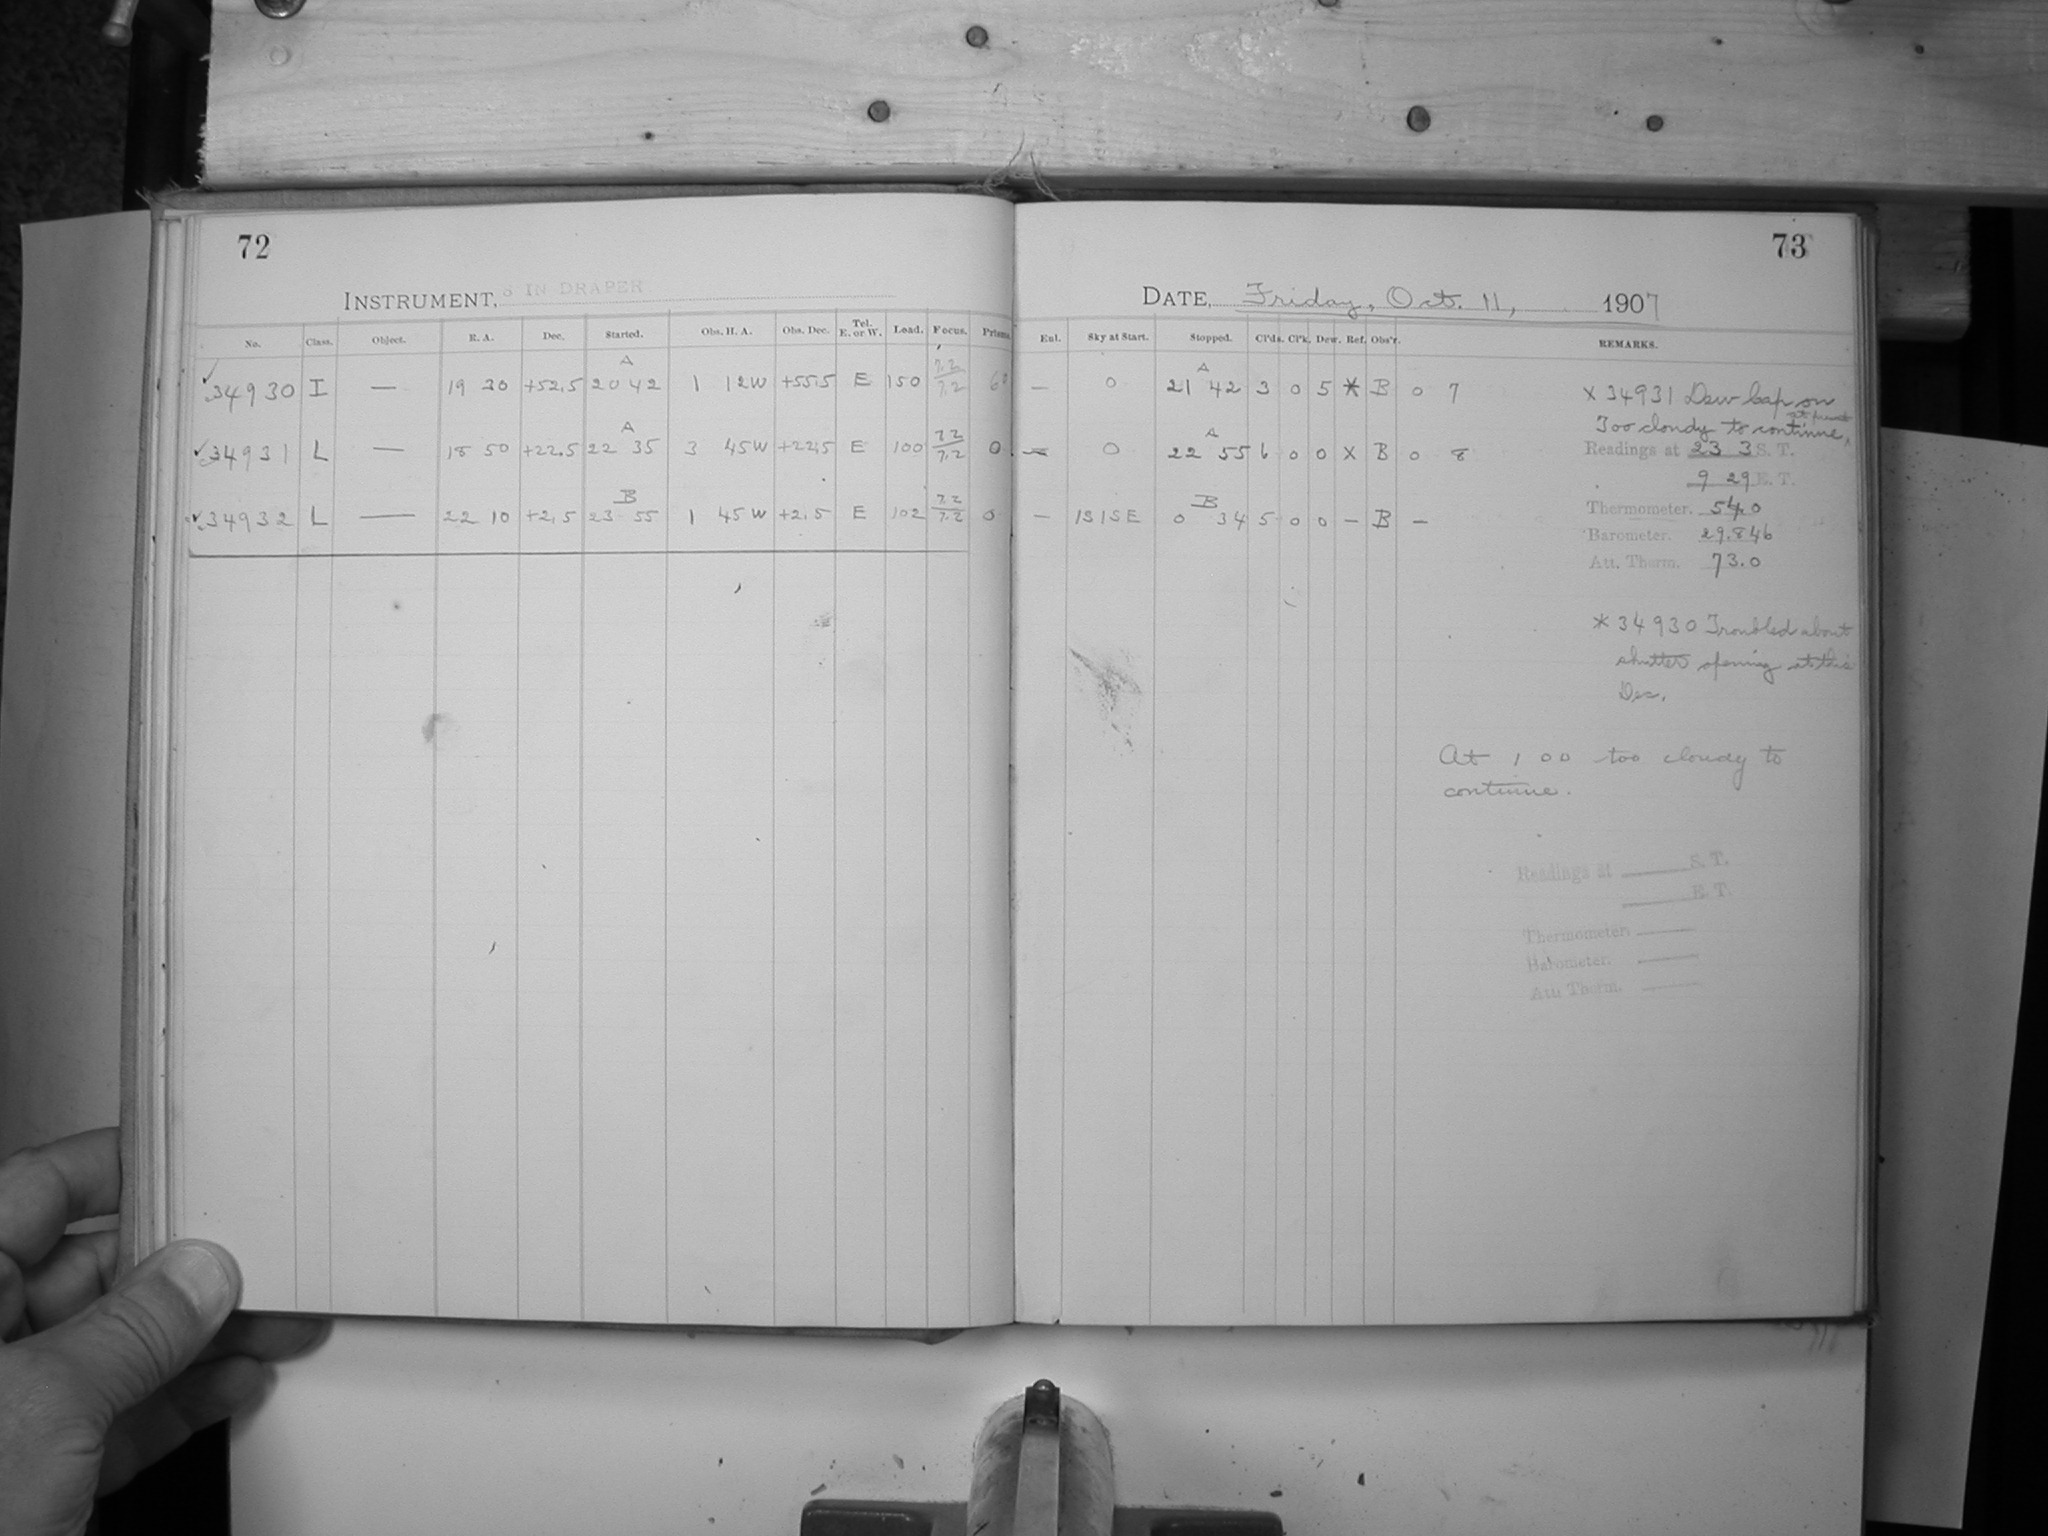 72
INSTRUMENT, 8 IN DRAPER
No. Class. Object. R. A. Dec. Started. Obs. H. A. Obs. Dec. Tel. E. or W. Load. Focus. Prisms
A
34930 I — 19 30 +52.5 20 42 1 12W +55.5 E 150 7.2 7.2
A
34931 L — 18 50 +22.5 22 35 3 45W +22.5 E 100 7.2 7.2 0
B
34932 L — 22 10 +2.5 23 55 1 45W +2.5 E 102 7.2 7.2 0
73
DATE, Friday, Oct. 11, 1907
Enl. Sky at Start. Stopped. Cl'ds. Cl'k. Dew. Ref. Obs'r. REMARKS.
A
— 0 21 42 3 0 5 * B 0 7
A
— 0 22 55 6 0 0 X B 0 8
B
— 1S1SE 0 34 5 0 0 — B —
X 34931 Dew Cap on
at finish
Too cloudy to continue.
Readings at 23 3 S. T.
9 29 E. T.
Thermometer. 54.0
Barometer. 29.846
Att. Therm. 73.0
* 34930 Troubled about
shutter opening at this
Dec.
At 1 00 too cloudy to
continue.
Readings at S. T.
E. T.
Thermometer.
Barometer.
Att. Therm.